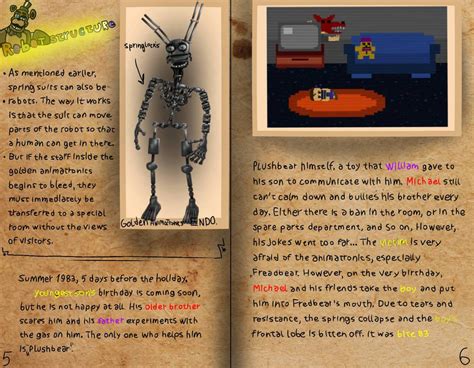 Robot structure
• As mentioned earlier,
spring suits can also be
robots. The way it works
is that the suit can move
parts of the robot so that
a human can get in there.
• But if the staff inside the
golden animatronics
begins to bleed, they
must immediately be
transferred to a special
room without the views
of visitors.
springlocks
Golden Animatronics ENDO.
Summer 1983, 5 days before the holiday,
youngest son's birthday is coming soon,
but he is not happy at all. His older brother
scares him and his father experiments with
the gas on him. The only one who helps him
is "plushbear".
5
Plushbear himself, a toy that William gave to
his son to communicate with him. Michael still
can't calm down and bullies his brother every
day. Either there is a ban in the room, or in the
spare parts department, and so on, However,
his jokes went too far... The victim is very
afraid of the animatronics, especially
Freadbear. However, on the very birthday,
Michael and his friends take the boy and put
him into Fredbear's mouth. Due to tears and
resistance, the springs collapse and the boy's
frontal lobe is bitten off. it was bite 83
6